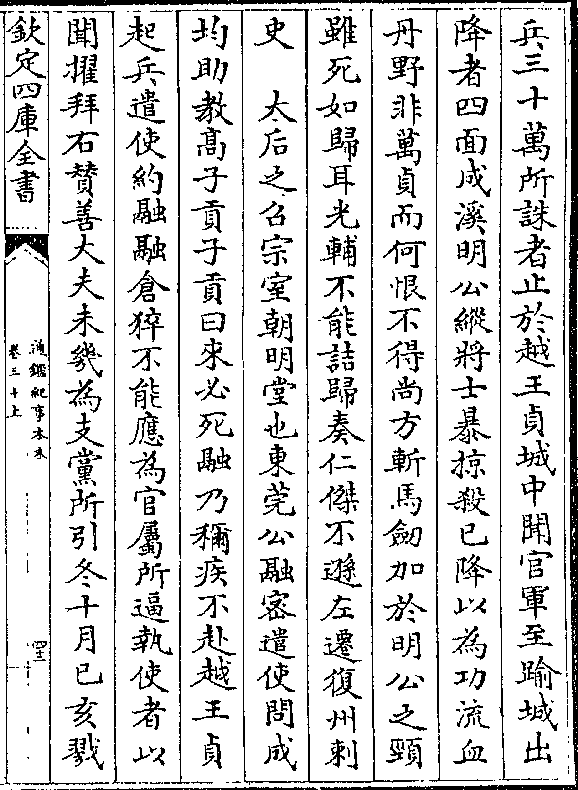 兵三十萬所誅者止於越王貞城中聞官軍至踰城出
降者四面成溪明公縱將士暴掠殺已降以為功流血
丹野非萬貞而何恨不得尚方斬馬劒加於明公之頸
雖死如歸耳光輔不能詰歸奏仁傑不遜左遷復州刺
史　太后之召宗室朝明堂也東莞公融密遣使問成
均助教髙子貢子貢曰來必死融乃稱疾不赴越王貞
起兵遣使約融融倉猝不能應為官屬所逼執使者以
聞擢拜右賛善大夫未幾為支黨所引冬十月已亥戮
欽定四庫全書
通鑑紀事本末
卷三十上